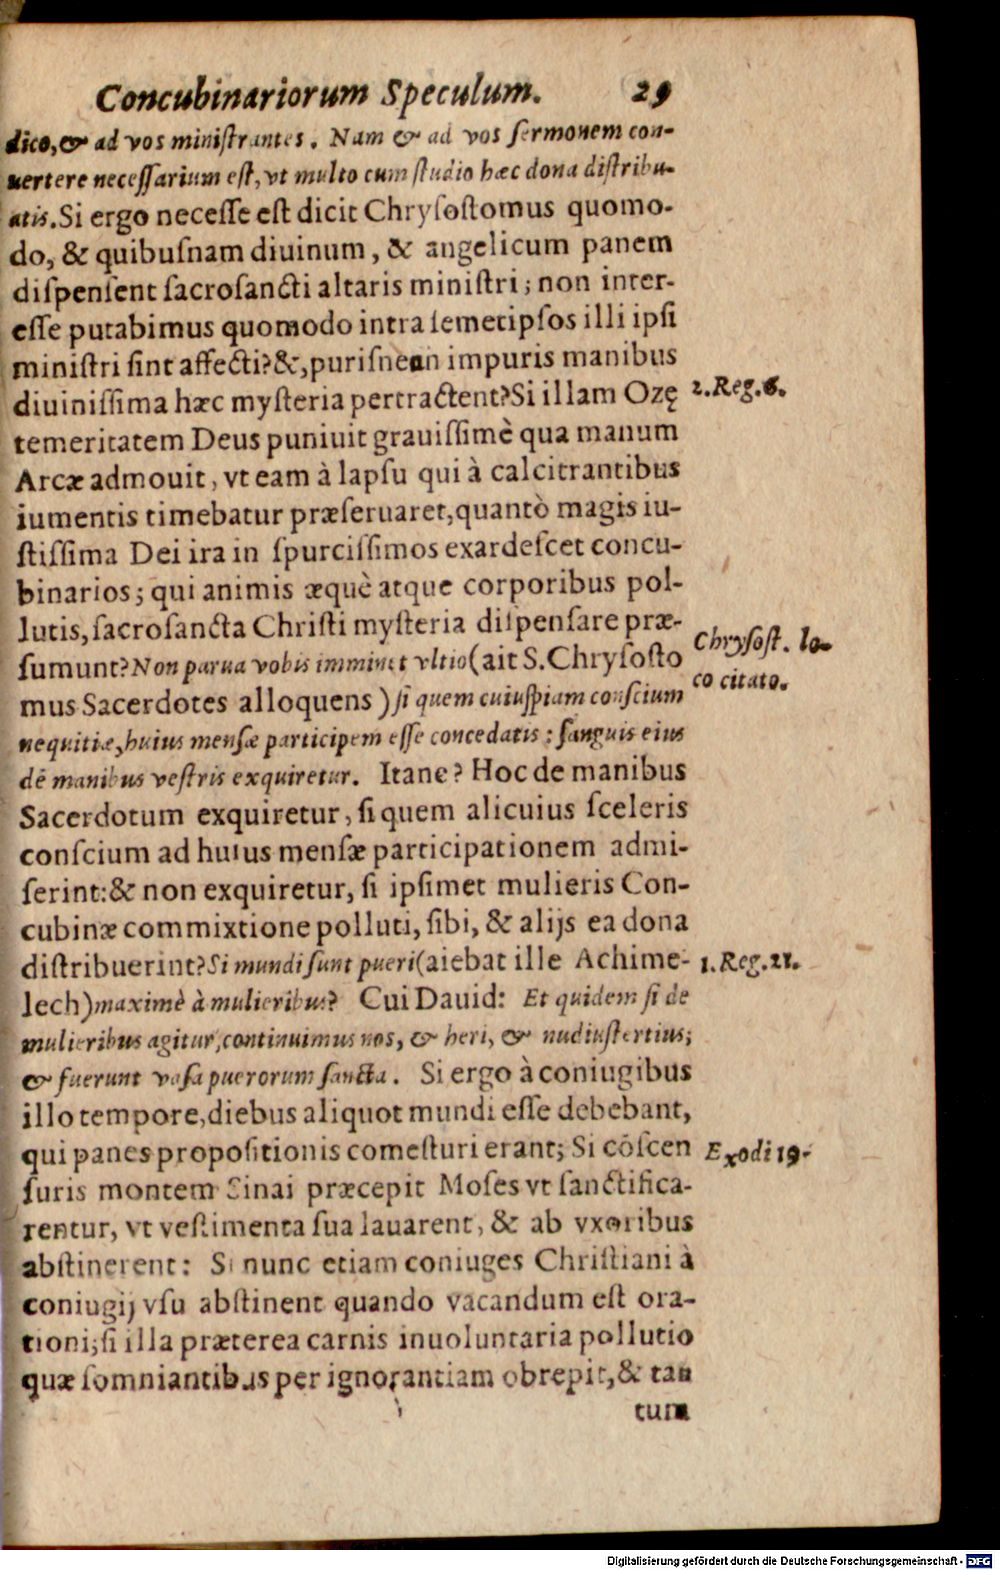 Concubinariorum Speculum. 29
dico, & ad vos miniſtrantes. Nam & ad vos ſermonem con-
uertere neceſſarium eſt, vt multo cum ſtudio hæc dona diſtribu-
atis. Si ergo neceſſe eſt dicit Chryſoſtomus quomo-
do, & quibuſnam diuinum, & angelicum panem
diſpenſent ſacroſancti altaris miniſtri; non inter-
eſſe putabimus quomodo intra ſemetipſos illi ipſi
miniſtri ſint affecti? &, puriſnean impuris manibus
diuiniſſima hæc myſteria pertractent? Si illam Ozę
2. Reg. 6.
temeritatem Deus puniuit grauiſſimè qua manum
Arcæ admouit, vt eam à lapſu qui à calcitrantibus
iumentis timebatur præſeruaret, quantò magis iu-
ſtiſſima Dei ira in ſpurciſſimos exardeſcet concu-
binarios; qui animis æquè atque corporibus pol-
lutis, ſacroſancta Chriſti myſteria diſpenſare præ-
Chryſoſt. lo-
ſumunt? Non parua vobis imminet vltio (ait S. Chryſoſto
co citato.
mus Sacerdotes alloquens) ſi quem cuiuſpiam conſcium
nequitiæ, huius menſæ participem eſſe concedatis: ſanguis eius
dē manibus veſtris exquiretur. Itane? Hoc de manibus
Sacerdotum exquiretur, ſi quem alicuius ſceleris
conſcium ad huius menſæ participationem admi-
ſerint: & non exquiretur, ſi ipſimet mulieris Con-
cubinæ commixtione polluti, ſibi, & alijs ea dona
diſtribuerint? Si mundi ſunt pueri (aiebat ille Achime-
1. Reg. 21.
lech) maximè à mulieribus? Cui Dauid: Et quidem ſi de
mulieribus agitur, continuimus nos, & heri, & nudiuſtertius;
& fuerunt vaſa puerorum ſancta. Si ergo à coniugibus
illo tempore, diebus aliquot mundi eſſe debebant,
qui panes propoſitionis comeſturi erant; Si cōſcen
Exodi 19.
ſuris montem Sinai præcepit Moſes vt ſanctifica-
rentur, vt veſtimenta ſua lauarent, & ab vxoribus
abſtinerent: Si nunc etiam coniuges Chriſtiani à
coniugij vſu abſtinent quando vacandum eſt ora-
tioni; ſi illa præterea carnis inuoluntaria pollutio
quæ ſomniantibus per ignorantiam obrepit, & tan
tum
Digitalisierung gefördert durch die Deutsche Forschungsgemeinschaft - DFG